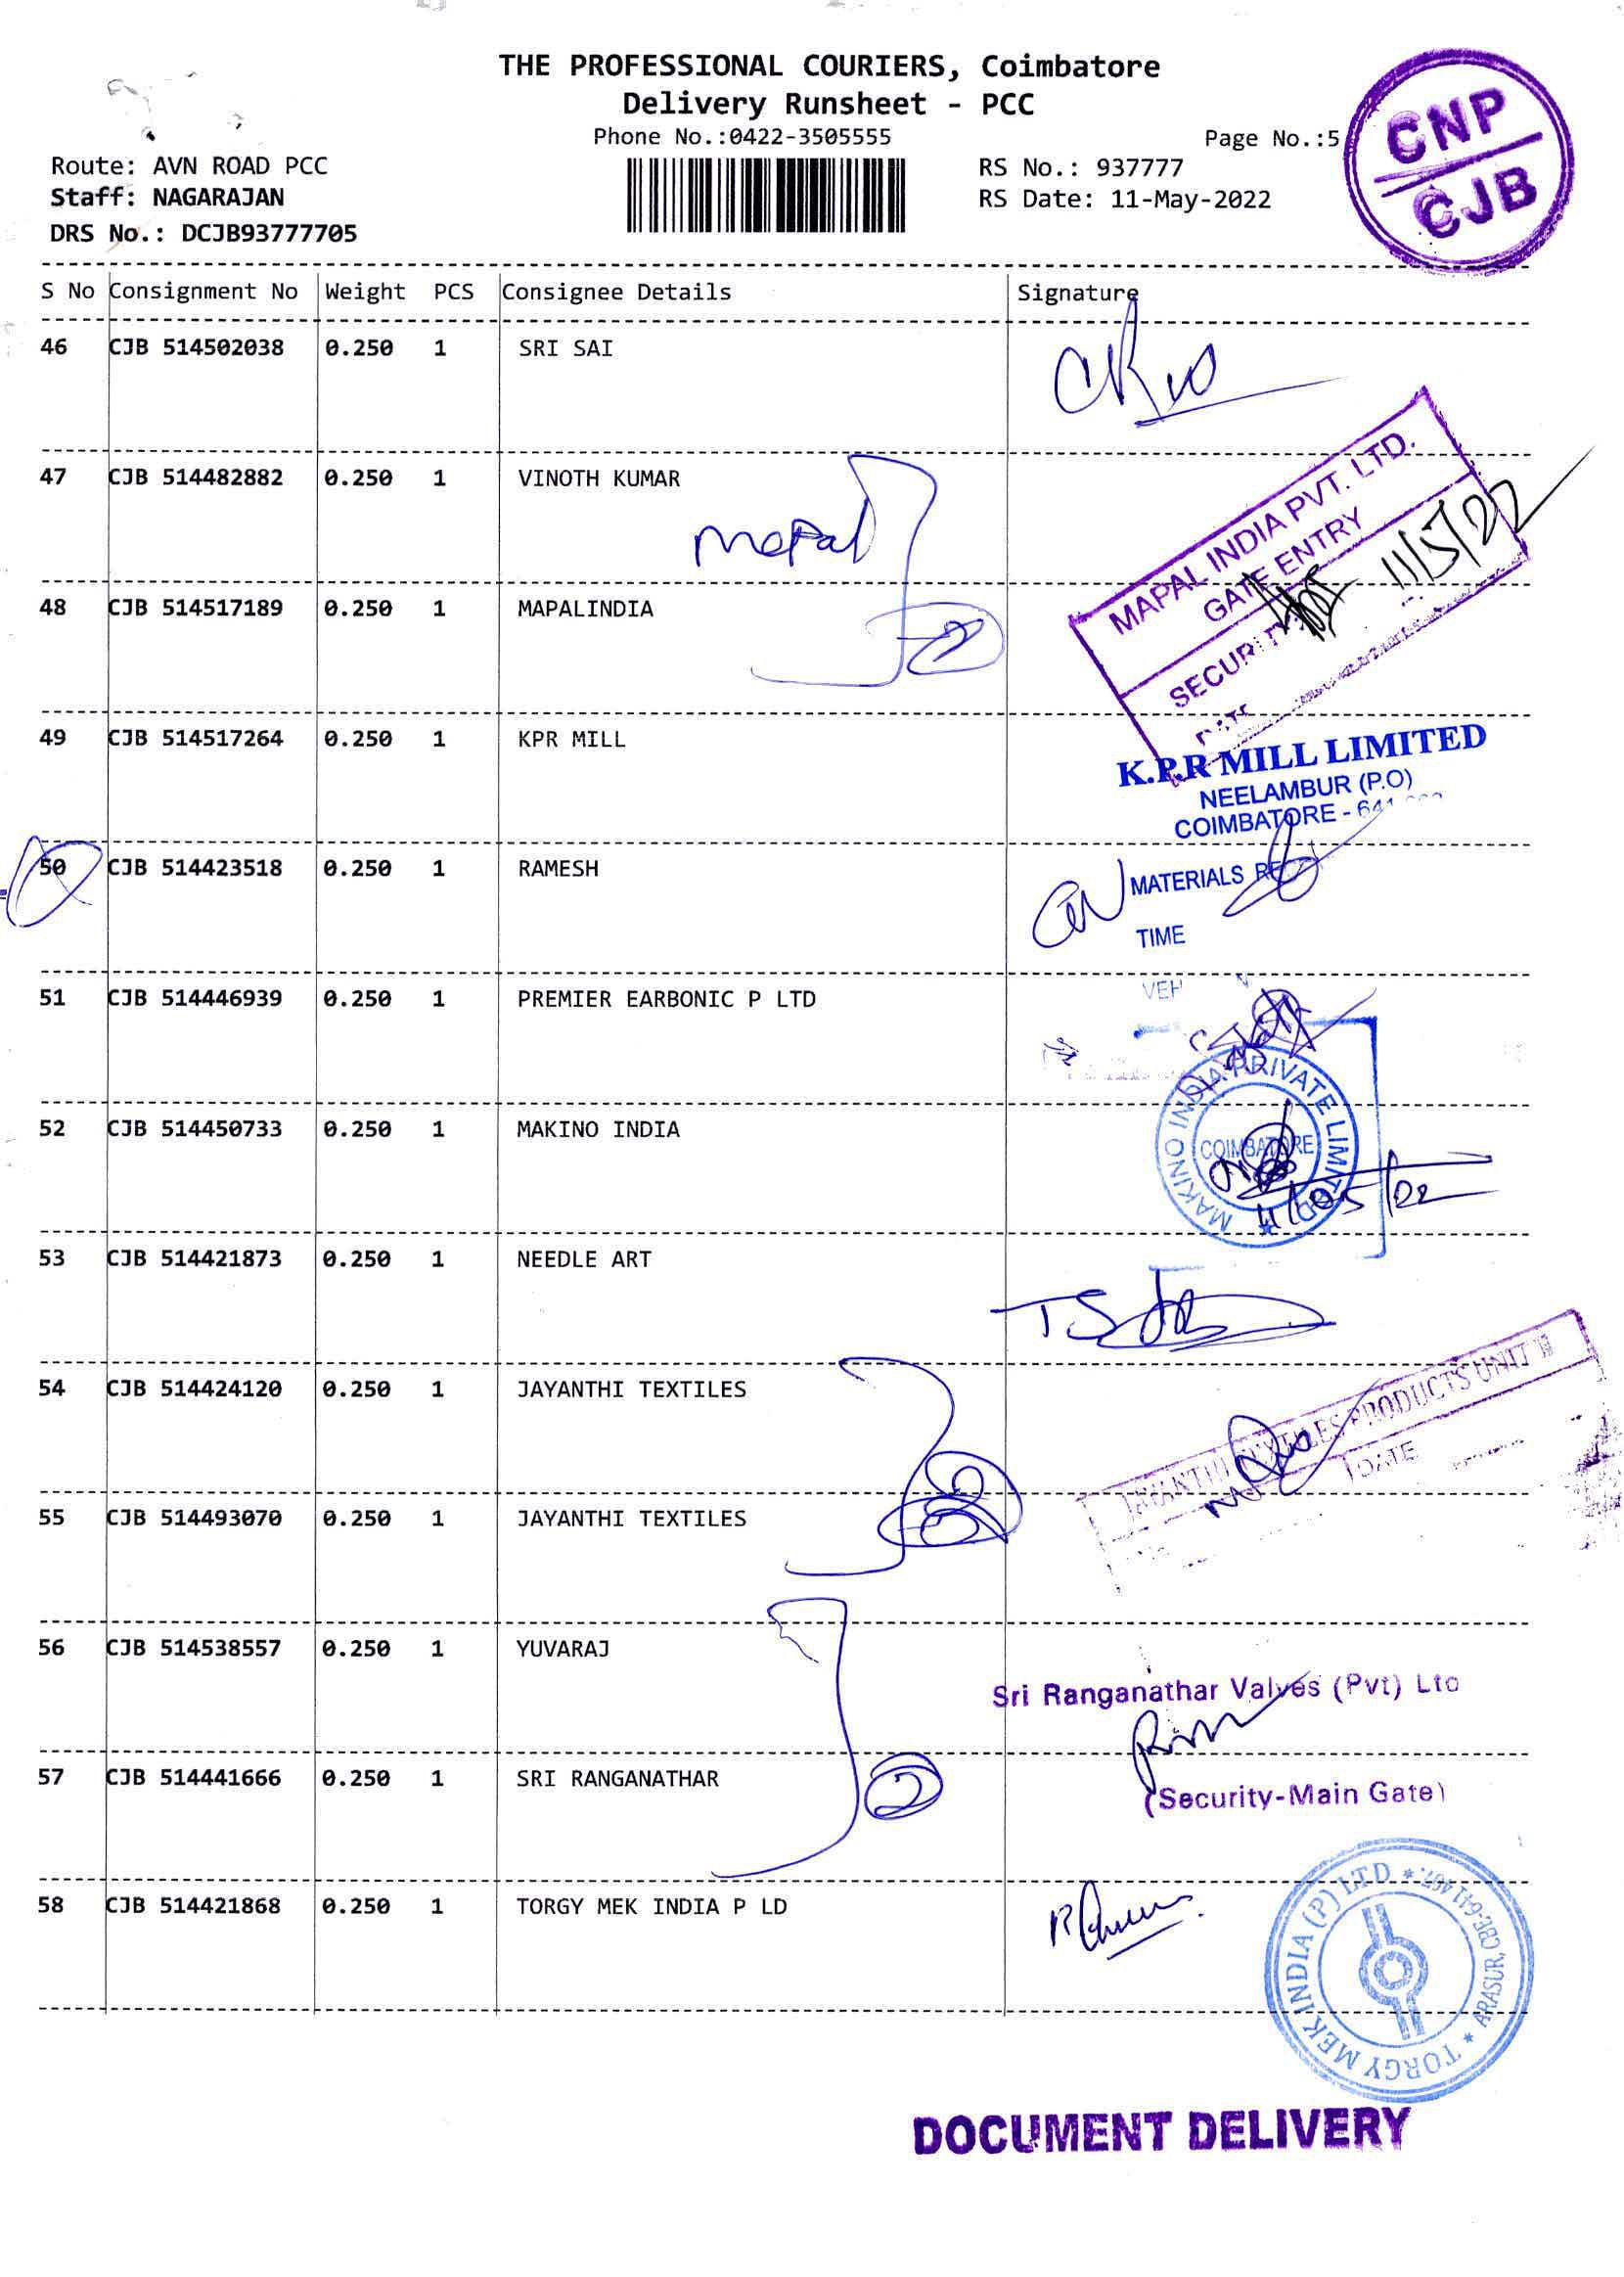 THE PROFESSIONAL COURIERS, Coimbatore
Delivery Runsheet - PCC
Phone No.:0422-3505555
Page No.:5
CNP
CJB
Route: AVN ROAD PCC
RS No.: 937777
Staff: NAGARAJAN
RS Date: 11-May-2022
DRS No.: DCJB93777705
S No Consignment No Weight PCS Consignee Details Signature
46 CJB 514502038 0.250 1 SRI SAI
47 CJB 514482882 0.250 1 VINOTH KUMAR
Mapal
MAPAL INDIA PVT. LTD.
GATE ENTRY
11/5/22
SECURITY
DATE
48 CJB 514517189 0.250 1 MAPALINDIA
2
49 CJB 514517264 0.250 1 KPR MILL
K.P.R MILL LIMITED
NEELAMBUR (P.O)
COIMBATORE - 641
50 CJB 514423518 0.250 1 RAMESH
MATERIALS
TIME
51 CJB 514446939 0.250 1 PREMIER EARBONIC P LTD
VEH
52 CJB 514450733 0.250 1 MAKINO INDIA
MAKINO INDIA PRIVATE LIMITED
COIMBATORE
11/05/22
53 CJB 514421873 0.250 1 NEEDLE ART
54 CJB 514424120 0.250 1 JAYANTHI TEXTILES
JAYANTHI TEXTILES PRODUCTS UNIT II
DATE
55 CJB 514493070 0.250 1 JAYANTHI TEXTILES
56 CJB 514538557 0.250 1 YUVARAJ
Sri Ranganathar Valves (Pvt) Ltd
57 CJB 514441666 0.250 1 SRI RANGANATHAR
2
(Security-Main Gate)
58 CJB 514421868 0.250 1 TORGY MEK INDIA P LD
TORGY MEK INDIA (P) LTD * ARASUR, CBE-641 407. *
DOCUMENT DELIVERY